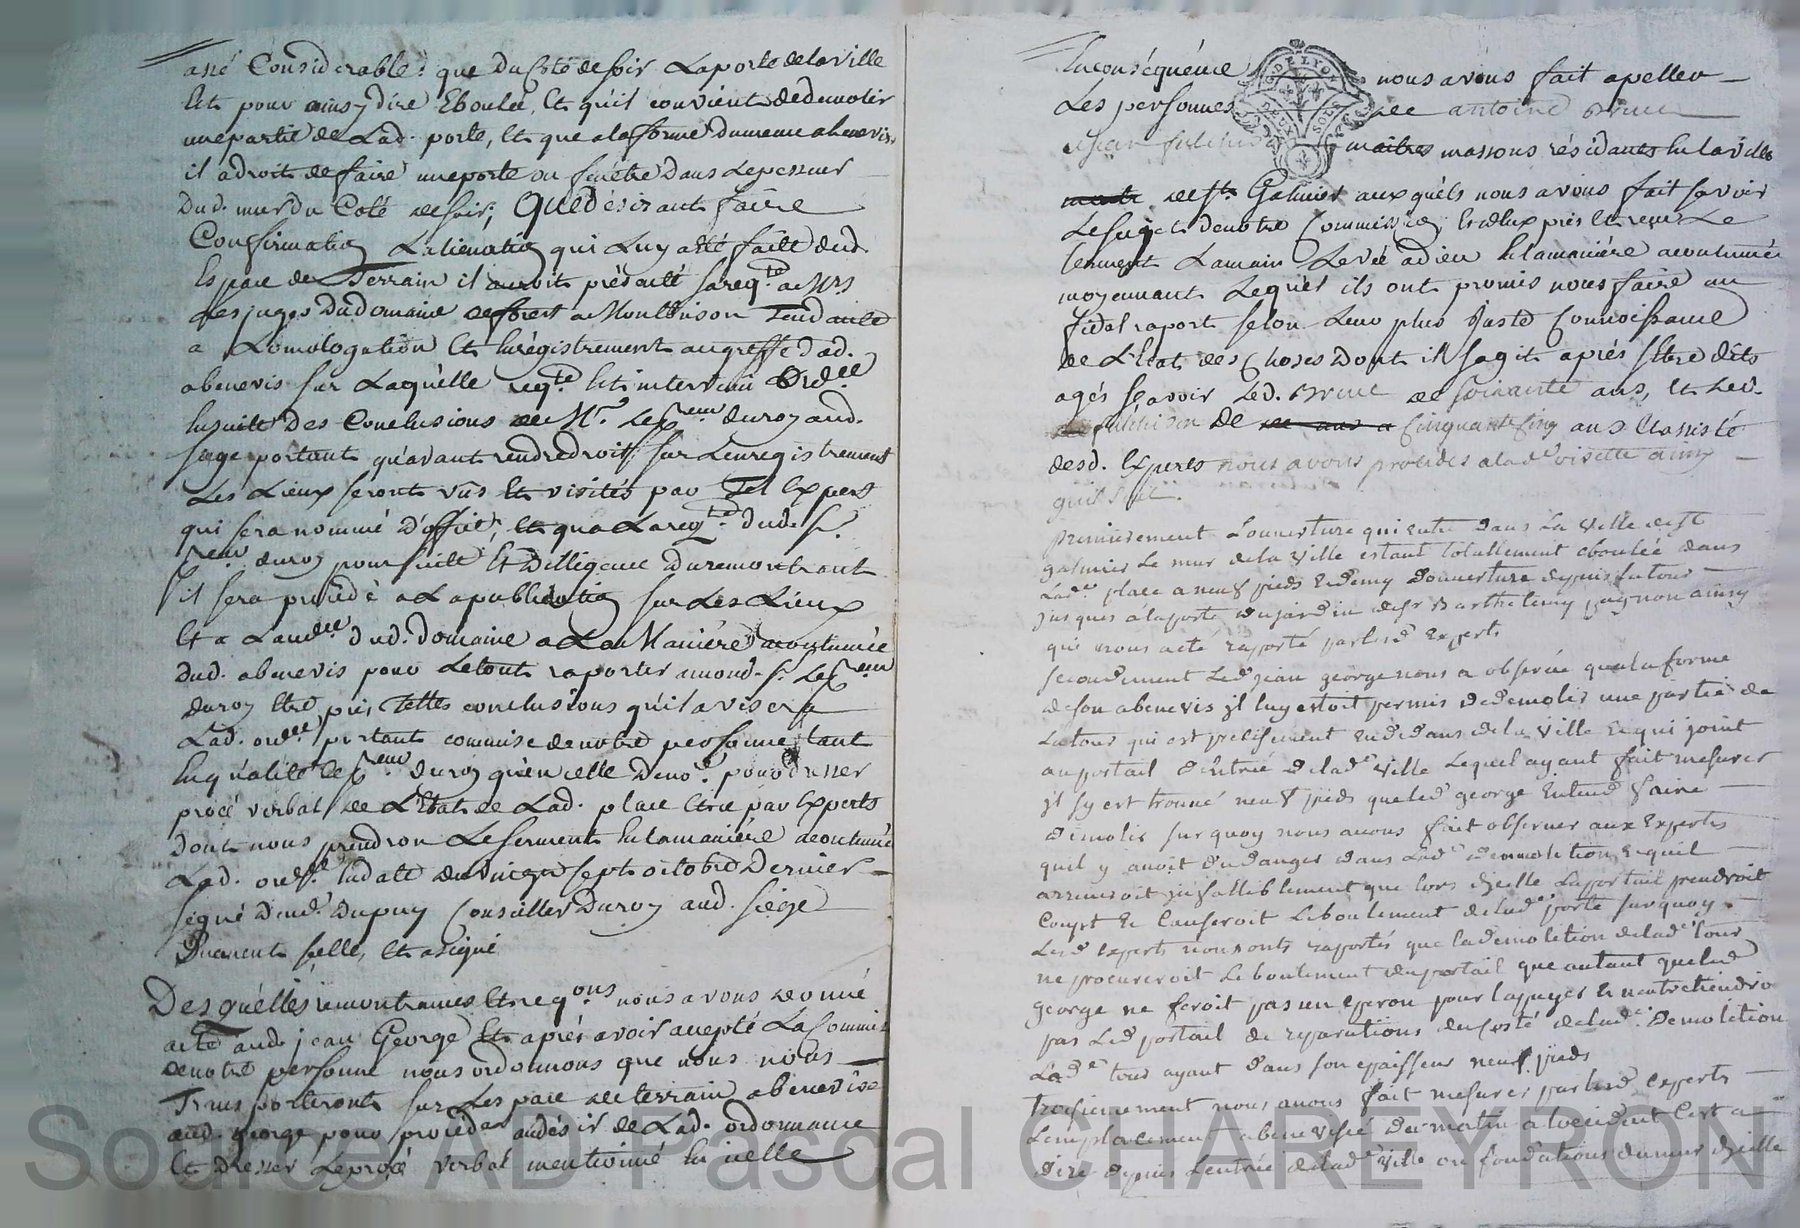 assé Considerable : que du Coté de soir La porte de la ville
Est pour ainsy dire Eboulée, Et qu'il convient de demolir
une partie de Lad. porte, Et que a la forme du meme abenevis,
il a droit de faire une porte ou fenêtre dans Lepesseur
Dud. mur du Coté de soir; Que Désirant faire
Confirmation Lalienation qui Luy a été faite dud.
Espace de Terrain il auroit présenté sa reqte a Mrs
Les juges Du domaine de forest a Montbrison Tendante
a Lomologation Et Enrégistrement au greffe dud.
abenevis sur Laquelle reqte Est intervenu Ordce
Ensuite Des Conclusions de Mr. Le Preur du roy aud.
siege portant qu'avant rendre droit sur Lenregistrement
Les Lieux seront vus Et visités par Tel Expert
qui sera nommé D'office, Et qu'a La reqte. dud. Sr.
Preur du roy poursuite Et Dilligence Du remontrant
il sera procédé a La publication sur Les Lieux
Et a Laudce dud. Domaine a La Maniére acoutumée
Dud. abenevis pour Letout raporter amond. Sr. Le Preur
Du roy Etre pris Telles conclusions qu'il avisera
Lad. ordce portant commise de notre personne tant
En qualité de Preur du roy qu'en celle De nore. pour Dresser
procé verbal de L'Etat de Lad. place Etre par Experts
Dont nous prendron Le serment En la maniére acoutumé
Lad. ordce. En date du vingt sept octobre Dernier
signé Deud. Dupuy Conseiller Du roy aud. Siége
Duement sellé, Et asigné
Des quelles remontrances Et reqons nous avons Donné
acte aud. jean George Et aprés avoir accepté La Commise
de notre personne nous ordonnons que nous nous
Transporterons sur Lespace de terrain abenevisé
aud. george pour procéder au désir de Lad. ordonnance
Et Dresser Leprocé verbal mentionné En icelle
En conséquence nous avons fait apeller
Les personnes de antoine Brun
maitres massons résidants En la ville
de St. Galmier aux quels nous avons fait savoir
Le sujet de notre Commission, Et d'eux pris Et reçu Le
serment Lamain Levée a dieu En la maniére acoutumée
moyennant Lequel ils ont promis nous faire un
fidel raport selon Leur plus Juste Connoissance
de L'Etat des Choses Dont il sagit aprés Etre dits
agés sçavoir Led. Brun de soixante ans, Et Led.
de cinquante cinq ans Et assisté
desd. Experts nous avons procédés a lad. visitte ainsy
qui suit.
premierement Louverture qui Entre dans La ville de St
galmier Le mur de la ville estant totallement eboulée dans
Lade place a neuf pieds Et demy Douverture depuis la tour
jusques a la porte du jardin de Sr Barthelemy pagnon ainsy
qui nous a eté raporté par lesd Experts
secondement Led jean george nous a observé que a la forme
de son abenevis il luy estoit permis de demolir une partie de
La tour qui est precisement En dedans de la ville Et qui joint
au portail d'Entrée de lade ville Lequel ayant fait mesurer
il sy est trouvé neuf pieds que led george Entend faire
demolir sur quoy nous avons fait observer aux Experts
quil y avoit du danger dans Lade demolition Et quil
arriveroit infalliblement que lors dicelle Laportail prendroit
Coup Et Causeroit Leboulement de lade porte sur quoy
Lesd experts nous onts raportés que la demolition de lade tour
ne procureroit Leboulement du portail que autant que led
george ne feroit pas un Eperon pour lapuyer Et nentretiendroit
pas Led portail de reparations du costé de lade. Demolition
Lade tour ayant dans son epaisseur neuf pieds
Troisiemement nous avons fait mesurer par lesd experts
Lemplacement abenevisé du matin a loccident Cest a
Dire depuis Lentrée de lade ville ou fondations du mur dicelle
G. DE LYON
DEUX SOLS
Source AD Pascal CHAREYRON